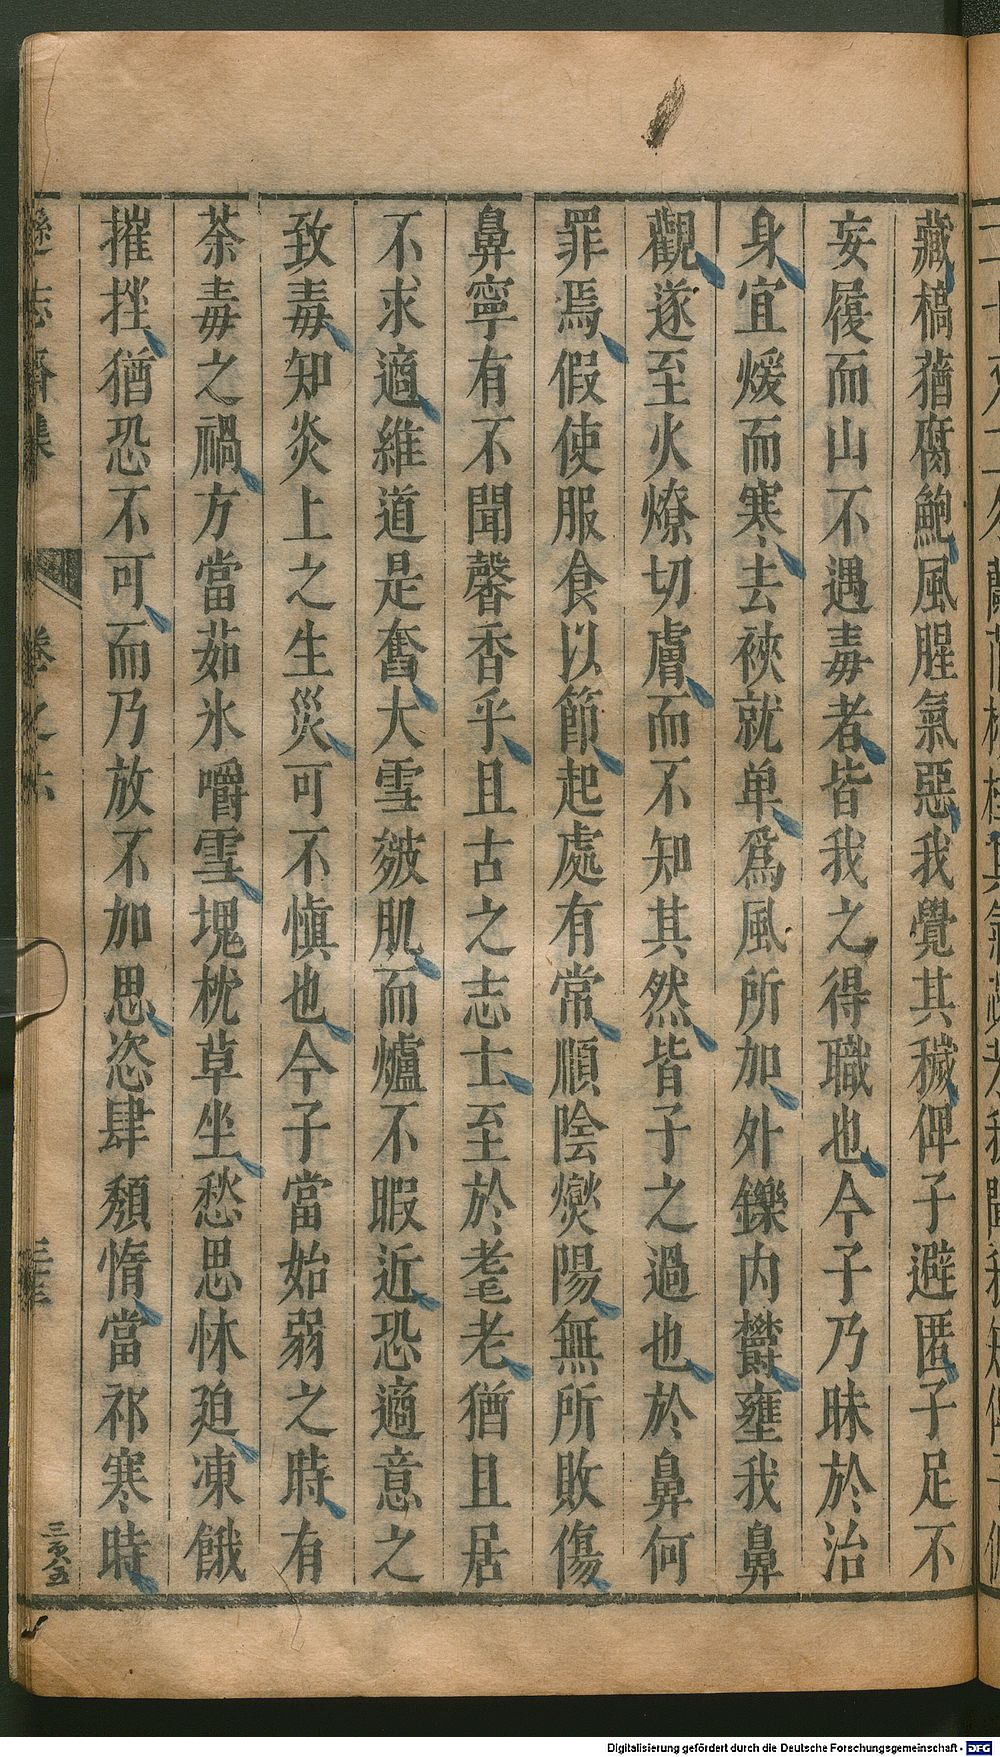 藏槁蕕腐鮑風腥氣惡我覺其穢俾子避匿子足不
妄履而山不遇毒者皆我之得職也今子乃昧於治
身宜煖而寒去裌就单爲風所加外鑠内欝壅我鼻
觀遂至火燎切膚而不知其然皆子之過也於鼻何
罪焉假使服食以節起處有常順陰爕陽無所敗傷
鼻寧有不聞馨香乎且古之志士至於耄老猶且居
不求適維道是奮大雪皴肌而爐不暇近恐適意之
致毒知炎上之生災可不慎也今子當始弱之時有
荼毒之禍方當茹氷嚼雪塊枕草坐愁思怵廹凍餓
摧挫猶恐不可而乃放不加思恣肆頽惰當祁寒時
遜志齋集 卷之六
三百八五
Digitalisierung gefördert durch die Deutsche Forschungsgemeinschaft - DFG